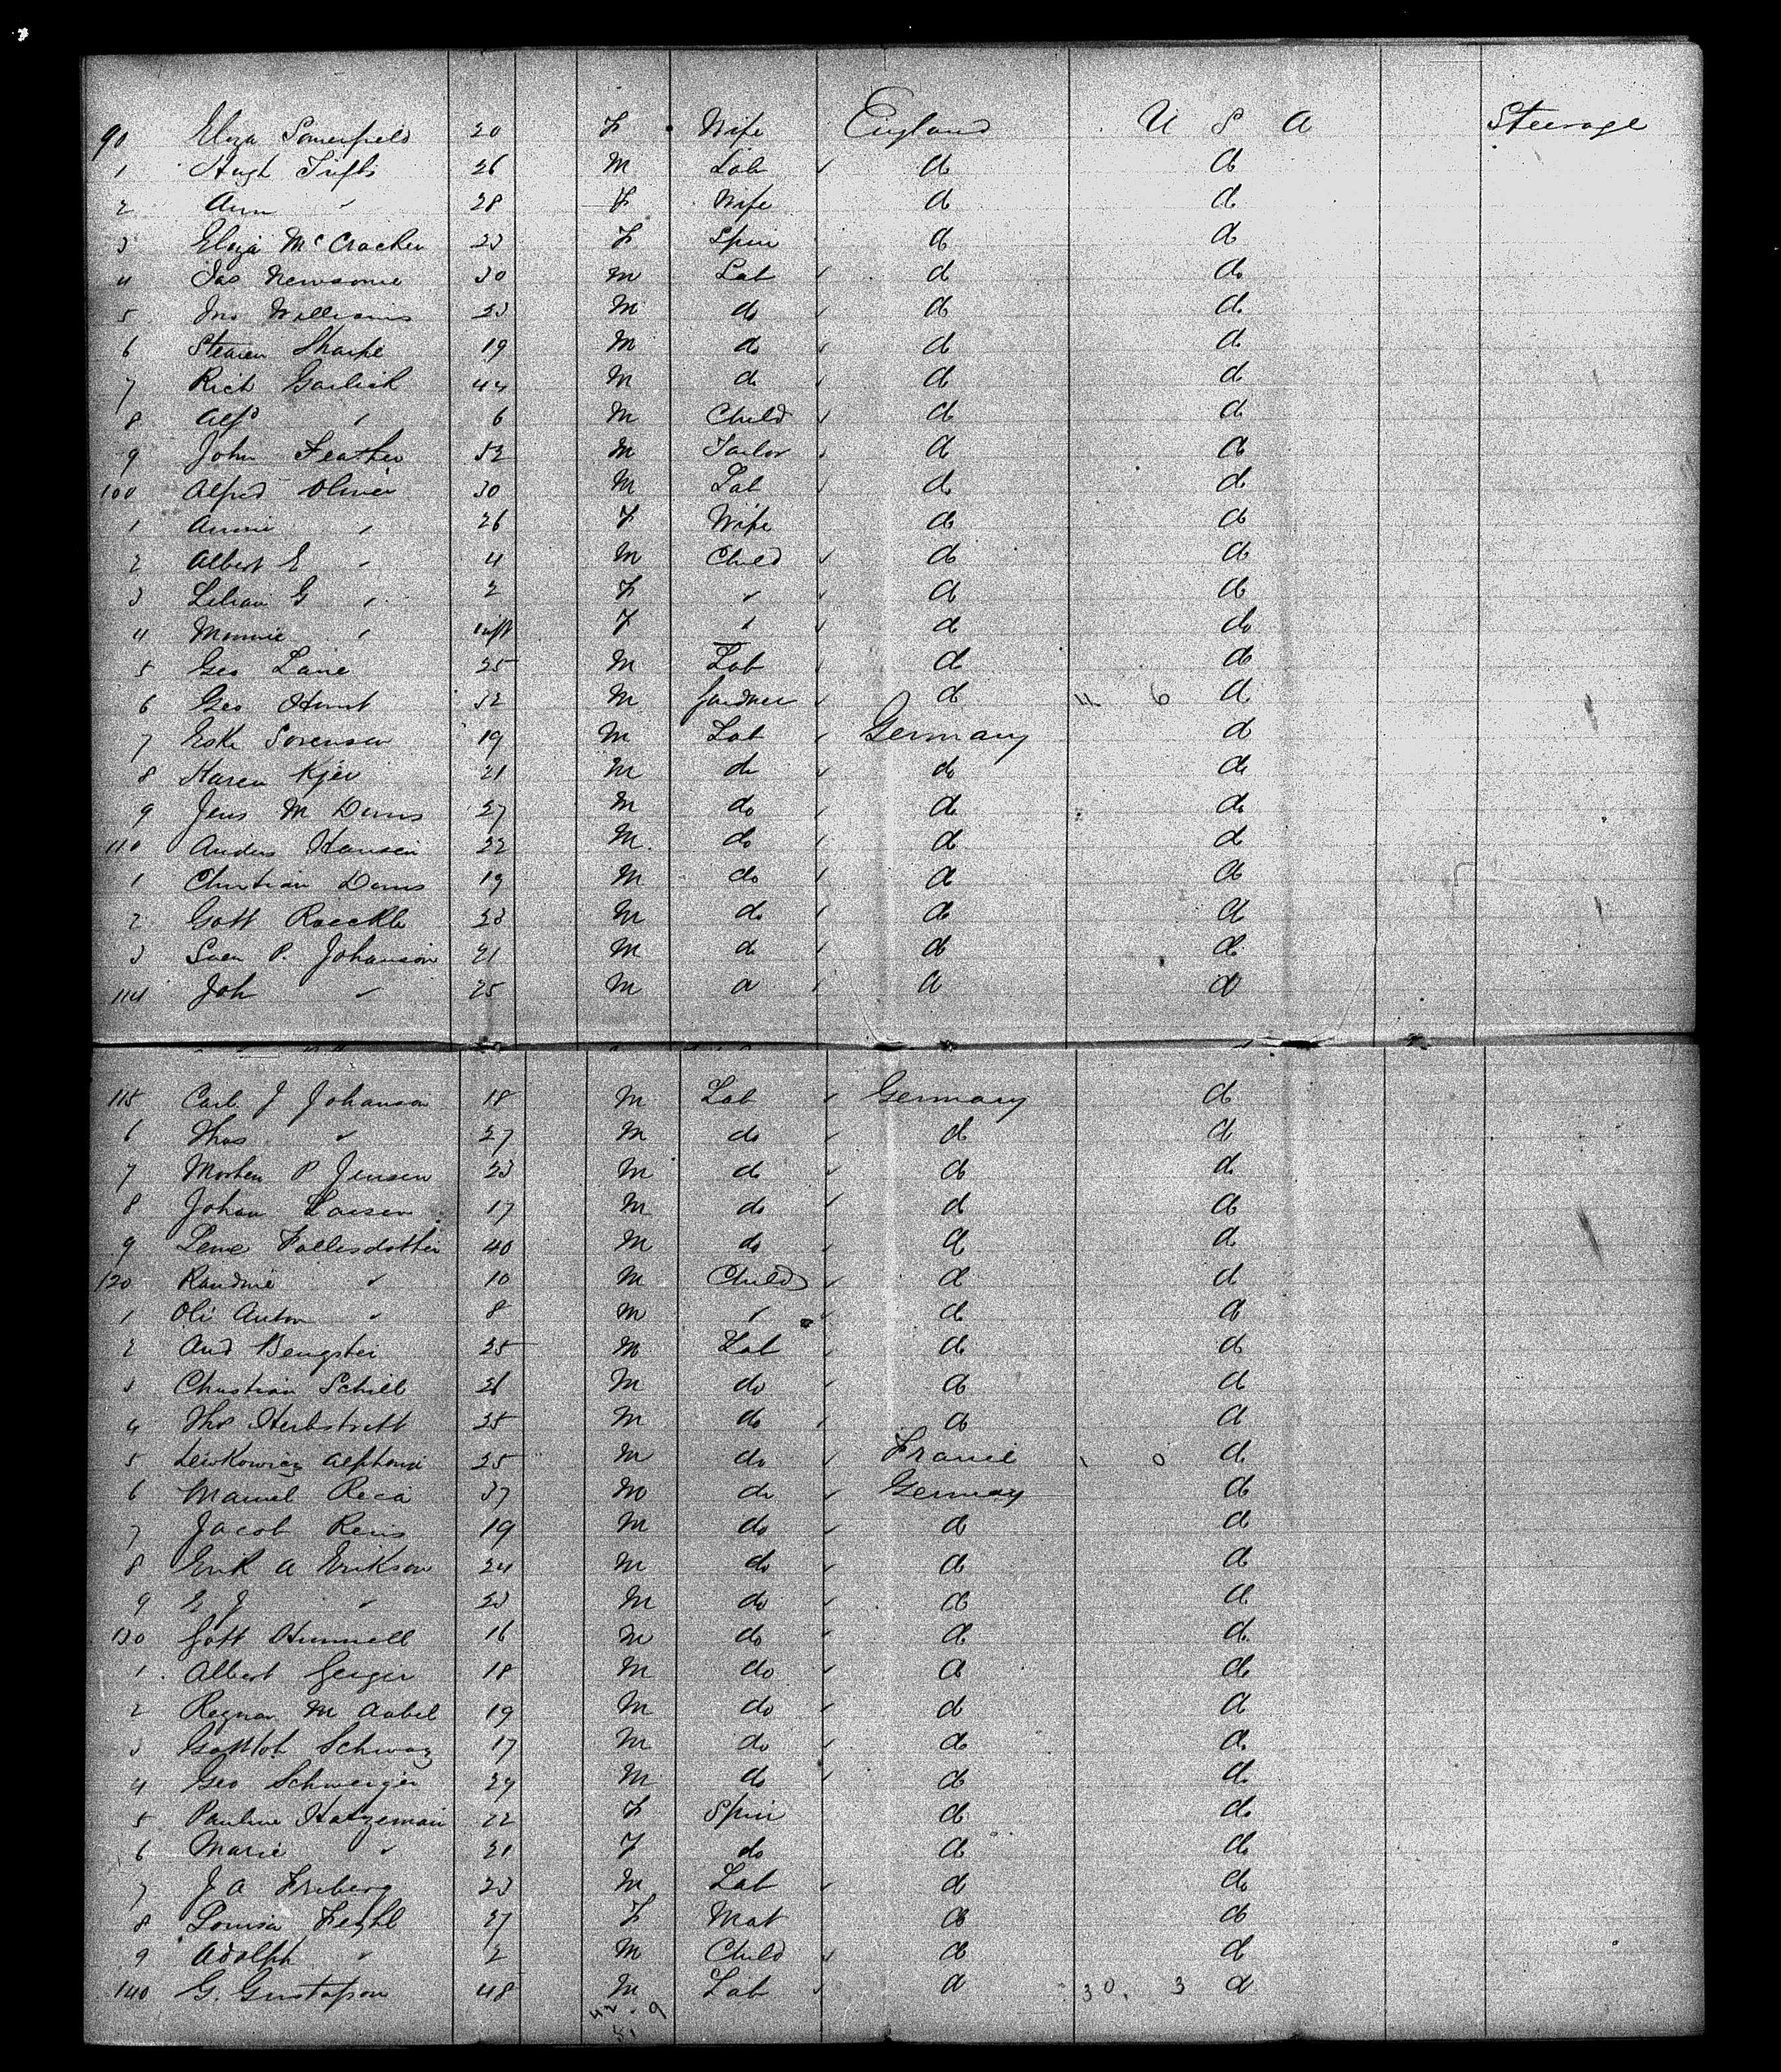 90 Eliza Somerfield 20 F Wife England U S A Steerage
1 Hugh 26 M Lab do do
2 Ann " 28 F Wife do do
3 Eliza McCracken 23 F Spin do do
4 Jas Newsome 30 M Lab do do
5 Jno Williams 23 M do do do
6 Sharpe 19 M do do do
7 Rich Garlick 44 M do do do
8 Alfd " 6 M Child do do
9 John Feather 52 M Tailor do do
100 Alfred Oliver 30 M Lab do do
1 Annie " 26 F Wife do do
2 Albert E " 4 M Child do do
3 Lilian G " 2 F " do do
4 Minnie " Inft F " do do
5 Geo Lane 25 M Lab do do
6 Geo Hunt 32 M Gardner do 11 6 do
7 Eske Sorensen 19 M Lab Germany do
8 Karen Kjer 21 M do do do
9 Jens M Dams 27 M do do do
110 Anders Hansen 22 M do do do
1 Christian Dams 19 M do do do
2 Gott Roeckle 23 M do do do
3 Sven P. Johanson 21 M do do do
114 Joh " 25 M do do do
115 Carl J Johanson 18 M Lab Germany do
6 Thos " 27 M do do do
7 Morten P Jensen 23 M do do do
8 Johan Larsen 17 M do do do
9 Lene 40 M do do do
120 Randine " 10 M Child do do
1 Ole Anton " 8 M " do do
2 And 25 M Lab do do
3 Christian Schill 26 M do do do
4 Thos Herbstritt 25 M do do do
5 Lewkowicz Alphonse 25 M do France 0 do
6 Manuel 37 M do Germany do
7 Jacob Reis 19 M do do do
8 Erik A Erikson 24 M do do do
9 E J " 23 M do do do
130 Gott Hummell 16 M do do do
1 Albert Geiger 18 M do do do
2 Regnar M Aabel 19 M do do do
3 Gottlob Schwarz 17 M do do do
4 Geo Schweiger 29 M do do do
5 Pauline Hatzeman 22 F Spin do do
6 Marie " 21 F do do do
7 J A Friberg 23 M Lab do do
8 Louisa 27 F Mat do do
9 Adolph " 2 M Child do do
140 G. Gustafson 48 M Lab do 30. 3 do
42 . 9
51